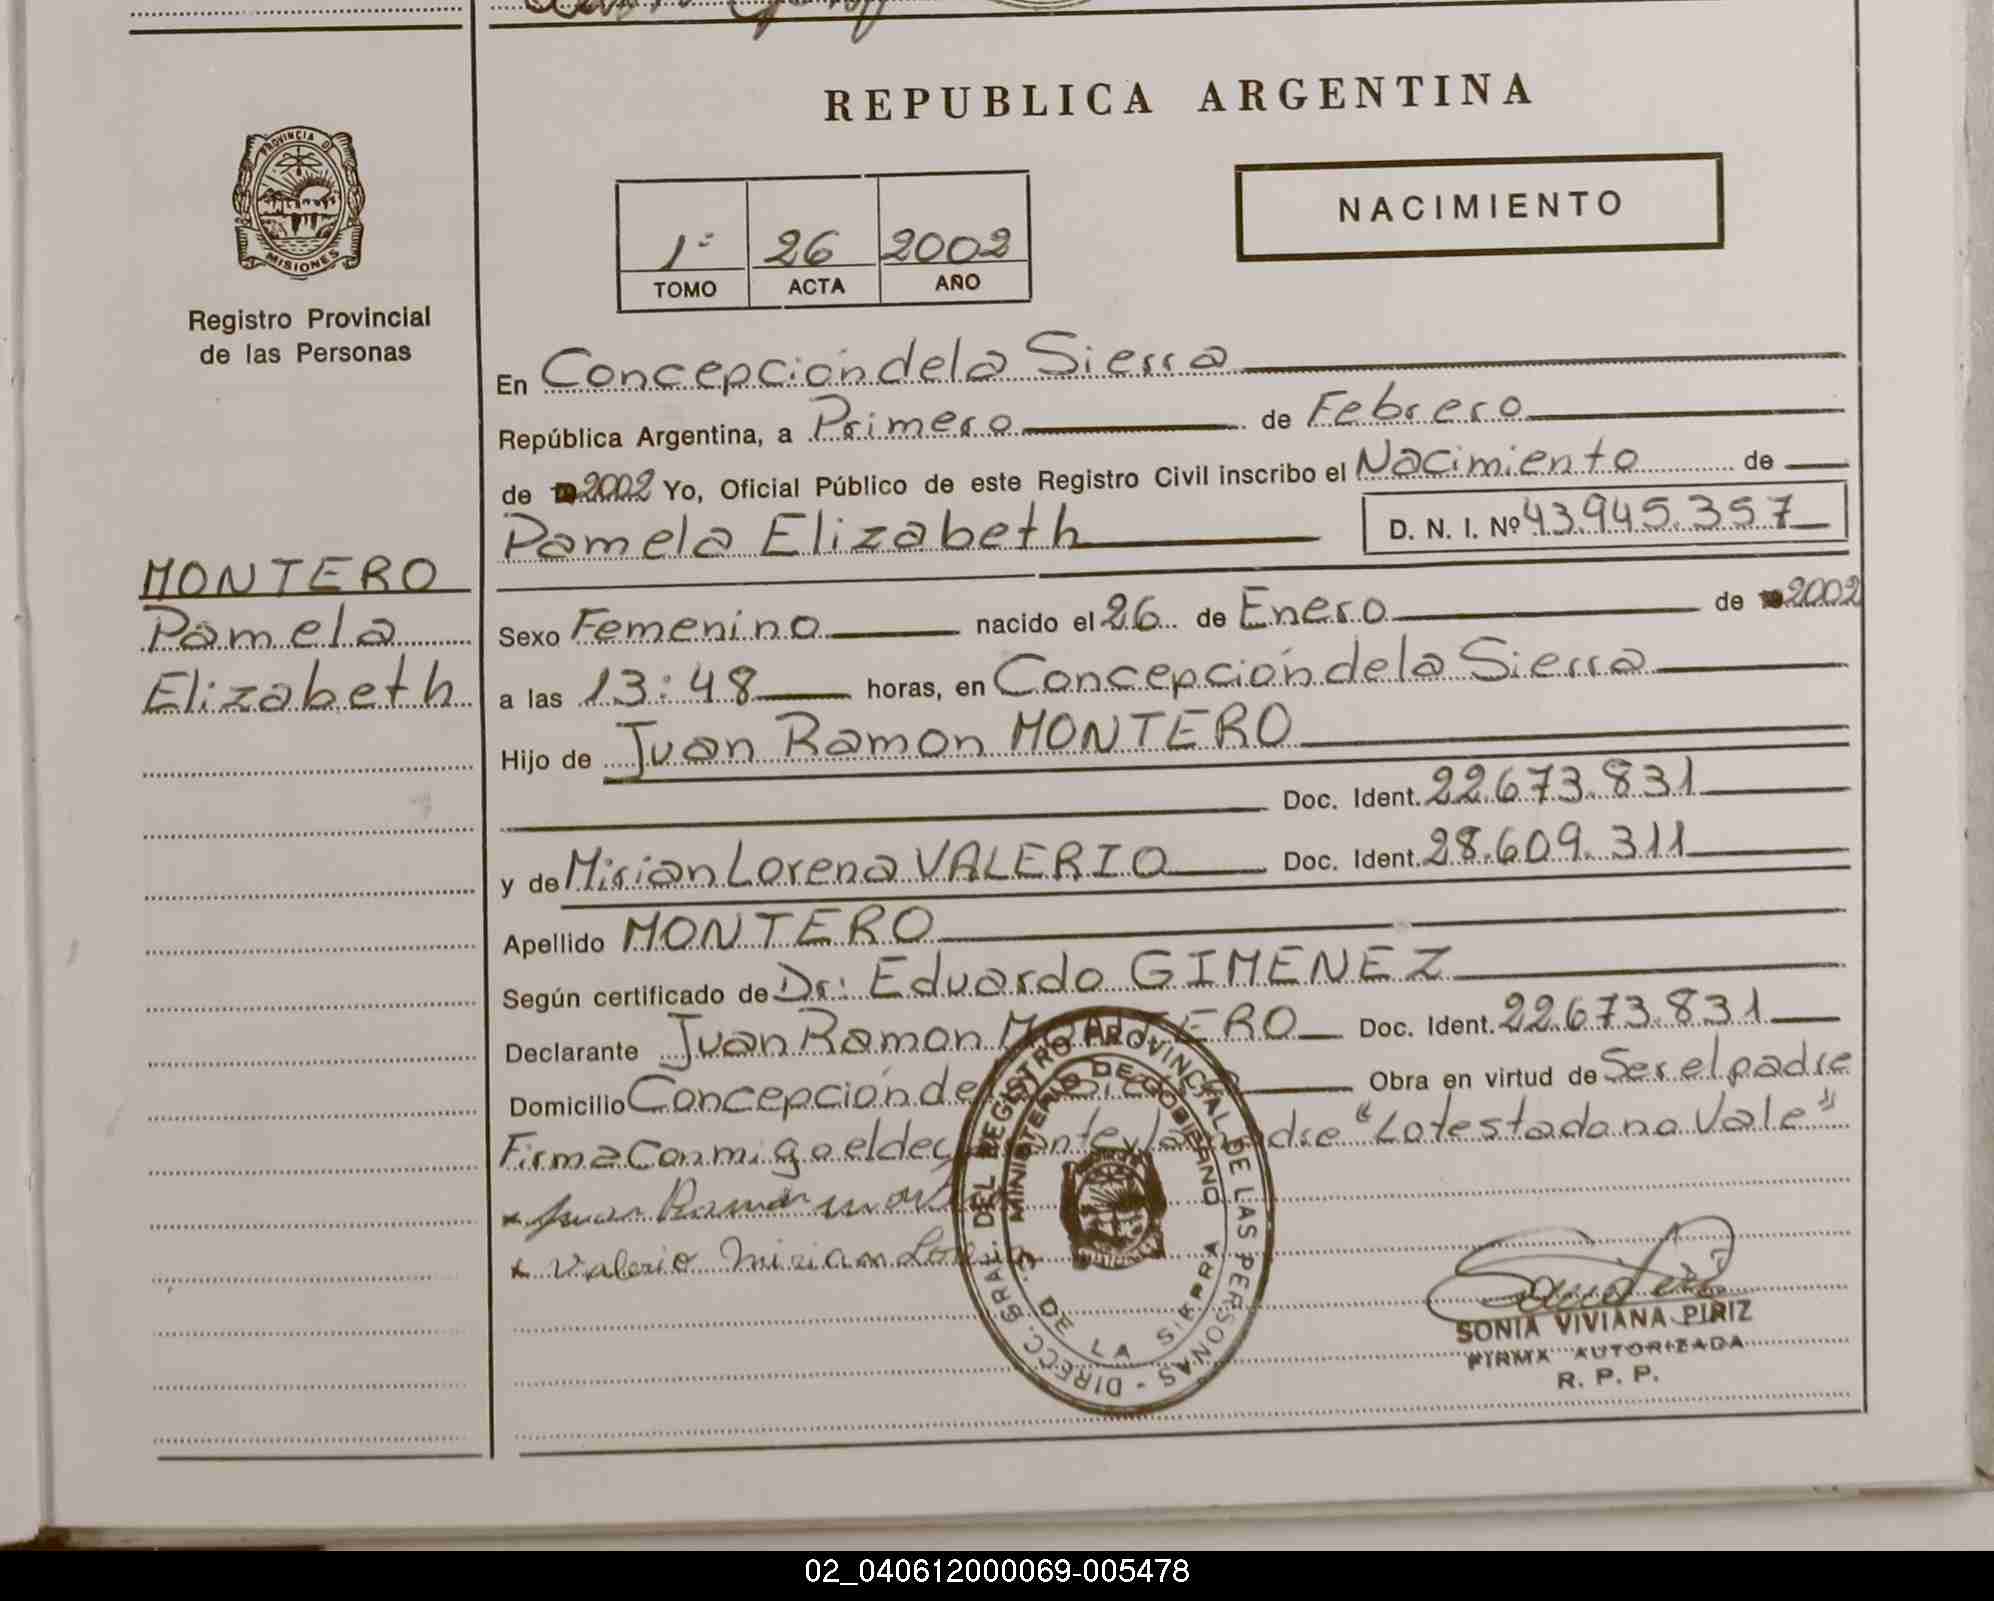 REPUBLICA ARGENTINA
PROVINCIA D
MISIONES
Registro Provincial
de las Personas
NACIMIENTO
1º 26 2002
TOMO ACTA AÑO
En Concepción de la Sierra
República Argentina, a Primero de Febrero
de 2002 Yo, Oficial Público de este Registro Civil inscribo el Nacimiento de
Pamela Elizabeth D. N. I. Nº 43.945.357
MONTERO
Pamela
Elizabeth
Sexo Femenino nacido el 26 de Enero de 2002
a las 13:48 horas, en Concepción de la Sierra
Hijo de Juan Ramon MONTERO
Doc. Ident. 22.673.831
y de Mirian Lorena VALERIO Doc. Ident. 28.609.311
Apellido MONTERO
Según certificado de Dr: Eduardo GIMENEZ
Declarante Juan Ramon MONTERO Doc. Ident. 22.673.831
Domicilio Concepción de Obra en virtud de Ser el padre
Firma Conmigo el declarante y la madre "Lo testado no Vale"
Juan Ramon
Valerio Mirian
DIRECC. GRAL. DEL REGISTRO PROVINCIAL DE LAS PERSONAS -
MINISTERIO DE GOBIERNO
DE LA SIERRA
SONIA VIVIANA PIRIZ
FIRMA AUTORIZADA
R. P. P.
02_040612000069-005478